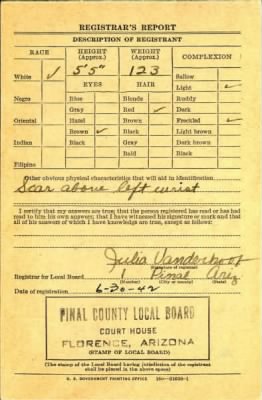 REGISTRAR'S REPORT
DESCRIPTION OF REGISTRANT
RACE HEIGHT (Approx.) WEIGHT (Approx.) COMPLEXION
5'5" 123 Sallow
White ✓ EYES HAIR Light
Negro Blue Blonde Ruddy
Gray Red ✓ Dark
Oriental Hazel Brown Freckled ✓
Brown ✓ Black Light brown
Indian Black Gray Dark brown
Bald Black
Filipino
Other obvious physical characteristics that will aid in identification
Scar above left wrist
I certify that my answers are true; that the person registered has read or has had
read to him his own answers; that I have witnessed his signature or mark and that
all of his answers of which I have knowledge are true, except as follows:
Julia Vanderhoof
(Signature of registrar)
Registrar for Local Board 1 Pinal Ariz
(Number) (City or county) (State)
Date of registration 6-30-42
PINAL COUNTY LOCAL BOARD
COURT HOUSE
FLORENCE, ARIZONA
(STAMP OF LOCAL BOARD)
(The stamp of the Local Board having jurisdiction of the registrant
shall be placed in the above space)
U. S. GOVERNMENT PRINTING OFFICE